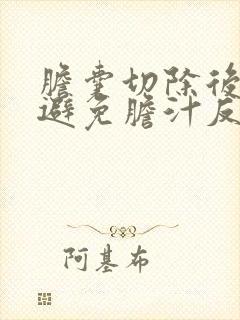 膽囊切除後
避免膽汁反
阿基布